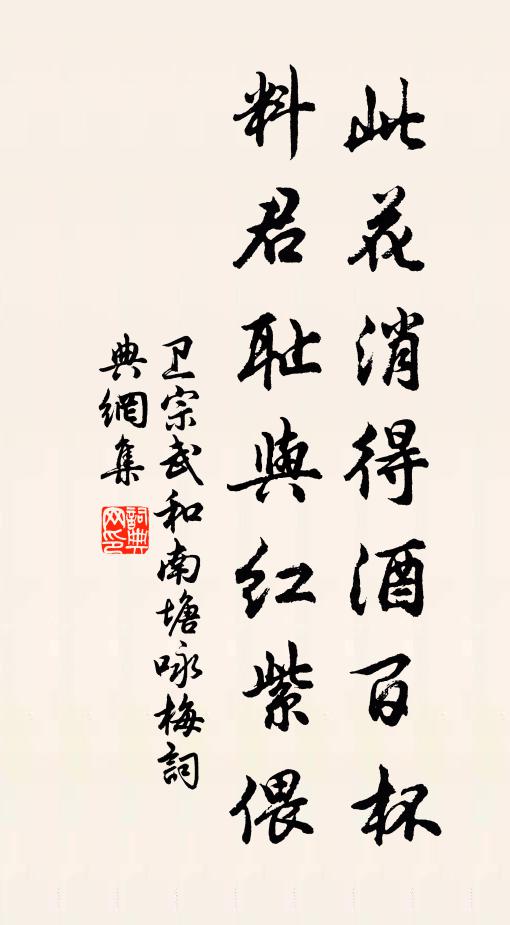 此花消得酒百杯
料君耻與红紫偎
卫宗武和南塘咏梅詞
典網集
詞典网印